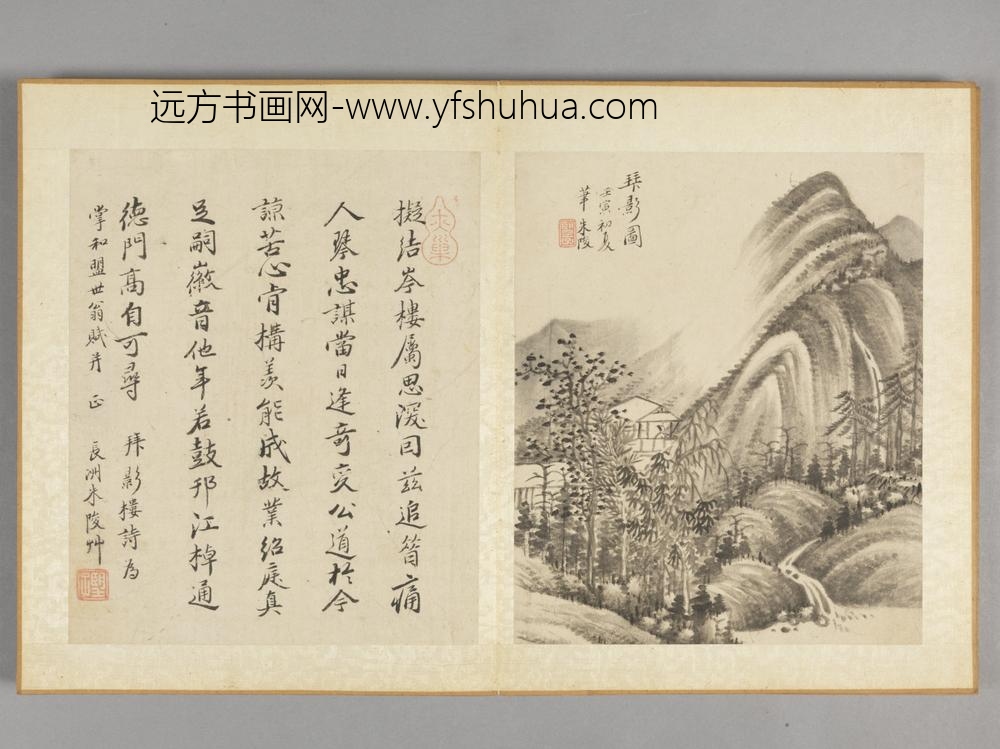 远方书画网-www.yfshuhua.com
拜影圖
壬寅初夏
華朱陵
擬結岑樓屬思深囙茲追昝痛
人琴忠謀當日逢奇變公道於今
諒苦心肯構羨能成故業紹庭真
足嗣徽音他年若鼓邗江棹通
德門高自可尋 拜影樓詩為
掌和盟世翁賦并正 長洲朱陵艸